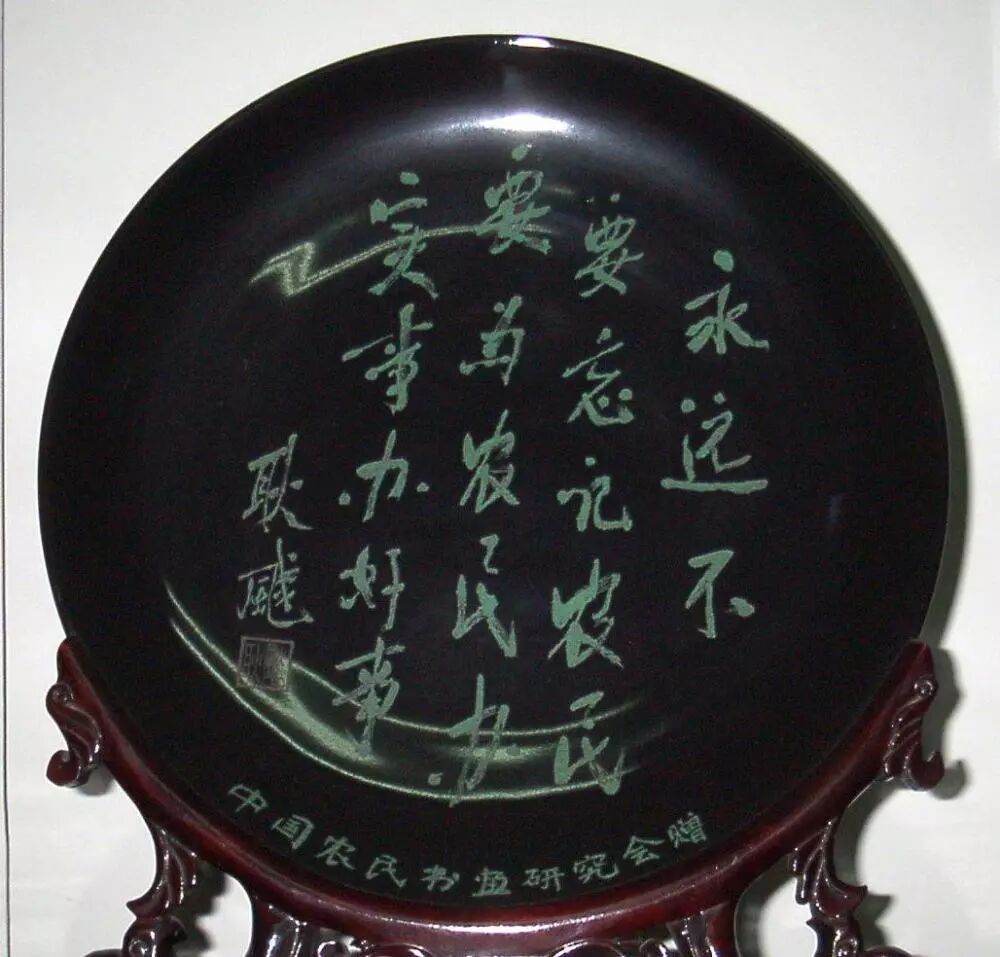 永远不
要忘记农民
要为农民办
实事办好事
耿飚
中国农民书画研究会赠